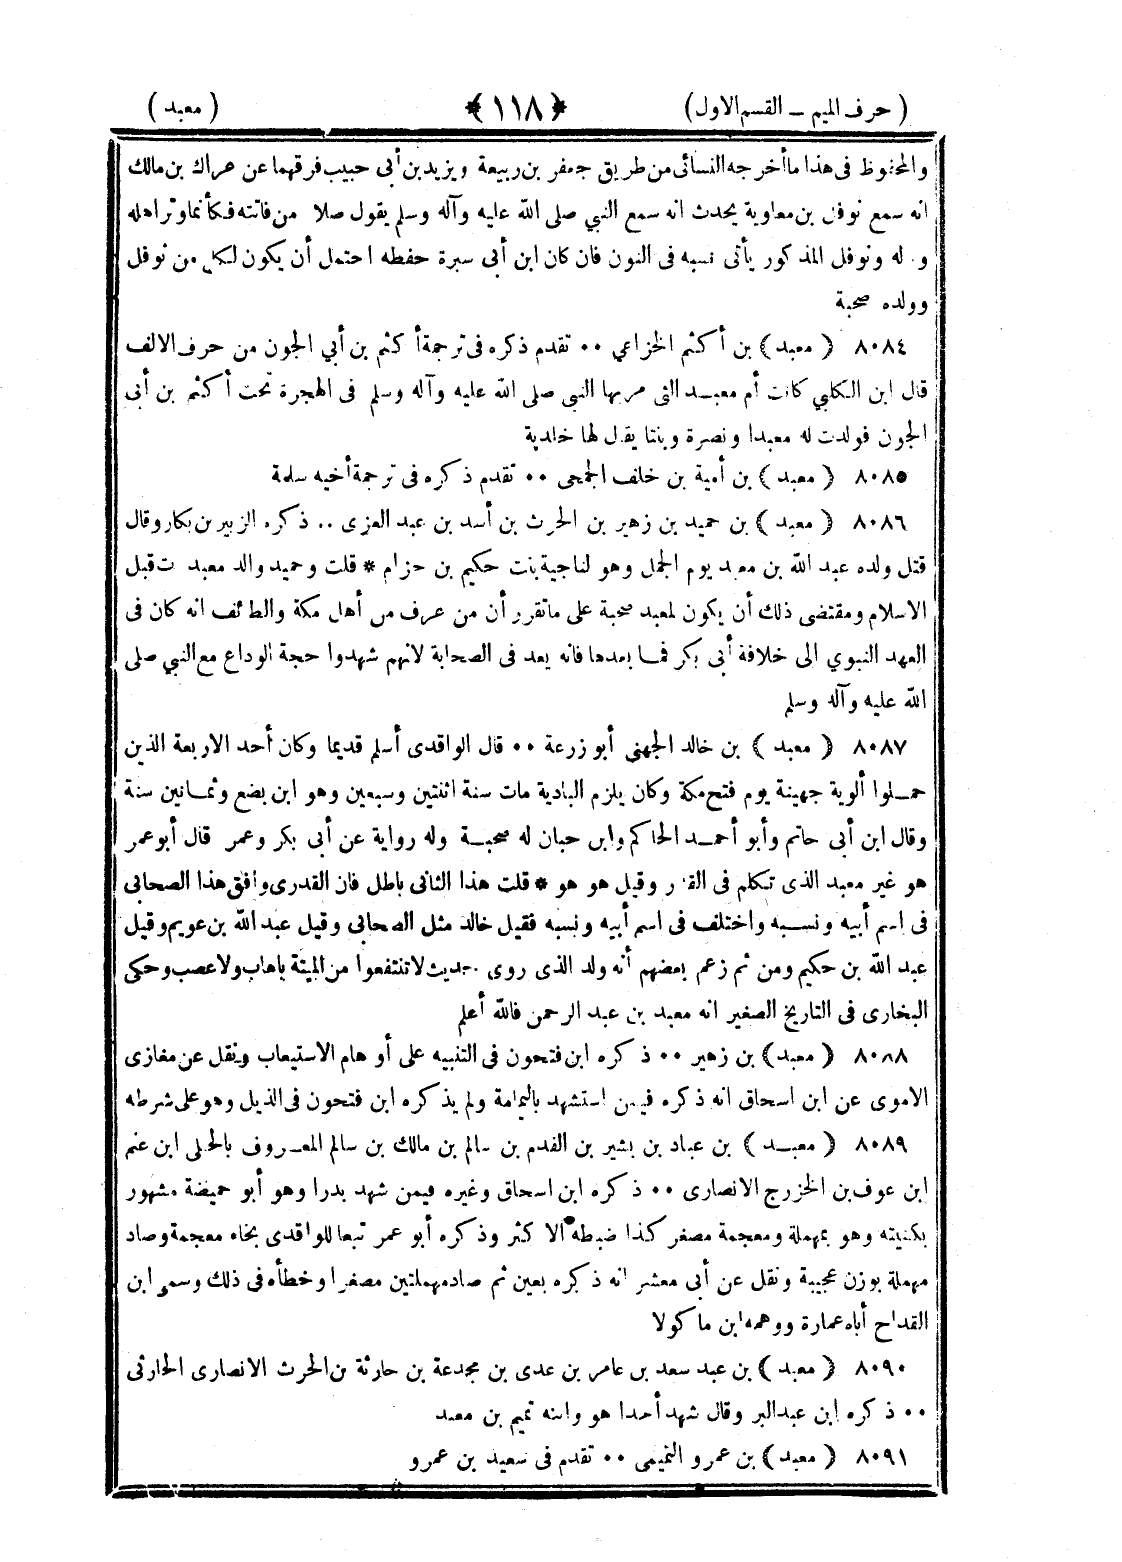 ( حرف الميم – القسم الاول) ﴿١١٨﴾ ( معبد )
والمحفوظ فى هذا ما أخرجه النسائى من طريق جعفر بن ربيعة ويزيد بن أبى حبيب فرقهما عن عراك بن مالك
انه سمع نوفل بن معاوية يحدث انه سمع النبي صلى الله عليه وآله وسلم يقول صلا من فاتته فكأنما وتر اهله
وله ونوفل المذكور يأتى نسبه فى النون فان كان ابن أبى سبرة حفظه احتمل أن يكون لكل من نوفل
وولده صحبة
٨٠٨٤ ( معبد ) بن أكثم الخزاعي ٠٠ تقدم ذكره فى ترجمة أكثم بن أبي الجون من حرف الالف
قال ابن الكلبي كانت أم معبـد التى مر بها النبى صلى الله عليه وآله وسلم فى الهجرة تحت أكثم بن أبى
الجون فولدت له معبدا ونصرة وبنتا يقال لها خلدية
٨٠٨٥ ( معبد ) بن أمية بن خلف الجمحى ٠٠ تقدم ذكره فى ترجمة أخيه سلمة
٨٠٨٦ ( معبد ) بن حميد بن زهير بن الحرث بن أسد بن عبد العزى .. ذكره الزبير بن بكار وقال
قتل ولده عبد الله بن معبد يوم الجمل وهو لناجية بنت حكيم بن حزام * قلت وحميد والد معبد ت قبل
الاسلام ومقتضى ذلك أن يكون لمعبد صحبة على ما تقرر أن من عرف من أهل مكة والطائف انه كان فى
العهد النبوي الى خلافة أبى بكر فما بعدها فانه يعد فى الصحابة لانهم شهدوا حجة الوداع مع النبي صلى
الله عليه وآله وسلم
٨٠٨٧ ( معبد ) بن خالد الجهنى أبو زرعة ٠٠ قال الواقدى أسلم قديما وكان أحد الاربعة الذين
حمـلوا ألوية جهينة يوم فتح مكة وكان يلزم البادية مات سنة اثنتين وسبعين وهو ابن بضع وثمـانين سنة
وقال ابن أبى حاتم وأبو أحمـد الحاكم وابن حبان له صحبـة وله رواية عن أبى بكر وعمر قال أبو عمر
هو غير معبد الذى تكلم فى القدر وقيل هو هو * قلت هذا الثانى باطل فان القدرى وافق هذا الصحابى
فى اسم أبيه ونسـبه واختلف فى اسم أبيه ونسبه فقيل خالد مثل الصحابى وقيل عبد الله بن عويم وقيل
عبد الله بن حكيم ومن ثم زعم بعضهم أنه ولد الذى روى حديث لا تنتفعوا من الميتة باهاب ولا عصب وحكى
البخارى فى التاريخ الصغير انه معبد بن عبد الرحمن فالله أعلم
٨٠٨٨ ( معبد) بن زهير ٠٠ ذكره ابن فتحون فى التنبيه على أوهام الاستيعاب ونقل عن مغازى
الاموى عن ابن اسحاق انه ذكره فيمن استشهد باليمامة ولم يذكره ابن فتحون فى الذيل وهو على شرطه
٨٠٨٩ ( معبـد ) بن عباد بن بشير بن الفدم بن سالم بن مالك بن سالم المعـروف بالحبلى ابن غنم
ابن عوف بن الخزرج الانصارى ٠٠ ذكره ابن اسحاق وغيره فيمن شهد بدرا وهو أبو حميضة مشهور
بكنيته وهو بمهملة ومعجمة مصغر كذا ضبطه الاكثر وذكره أبو عمر تبعا للواقدى بخاء معجمة وصاد
مهملة بوزن عجيبة ونقل عن أبى معشر انه ذكره بعين ثم صاد مهملتين مصغرا وخطأه فى ذلك وسمى ابن
القداح أباه عمارة ووهمه ابن ماكولا
٨٠٩٠ ( معبد ) بن عبد سعد بن عامر بن عدى بن مجدعة بن حارثة بن الحرث الانصارى الحارثى
٠٠ ذكره ابن عبد البر وقال شهد أحدا هو وابنه تميم بن معبد
٨٠٩١ ( معبد ) بن عمرو التميمى ٠٠ تقدم فى سعيد بن عمرو